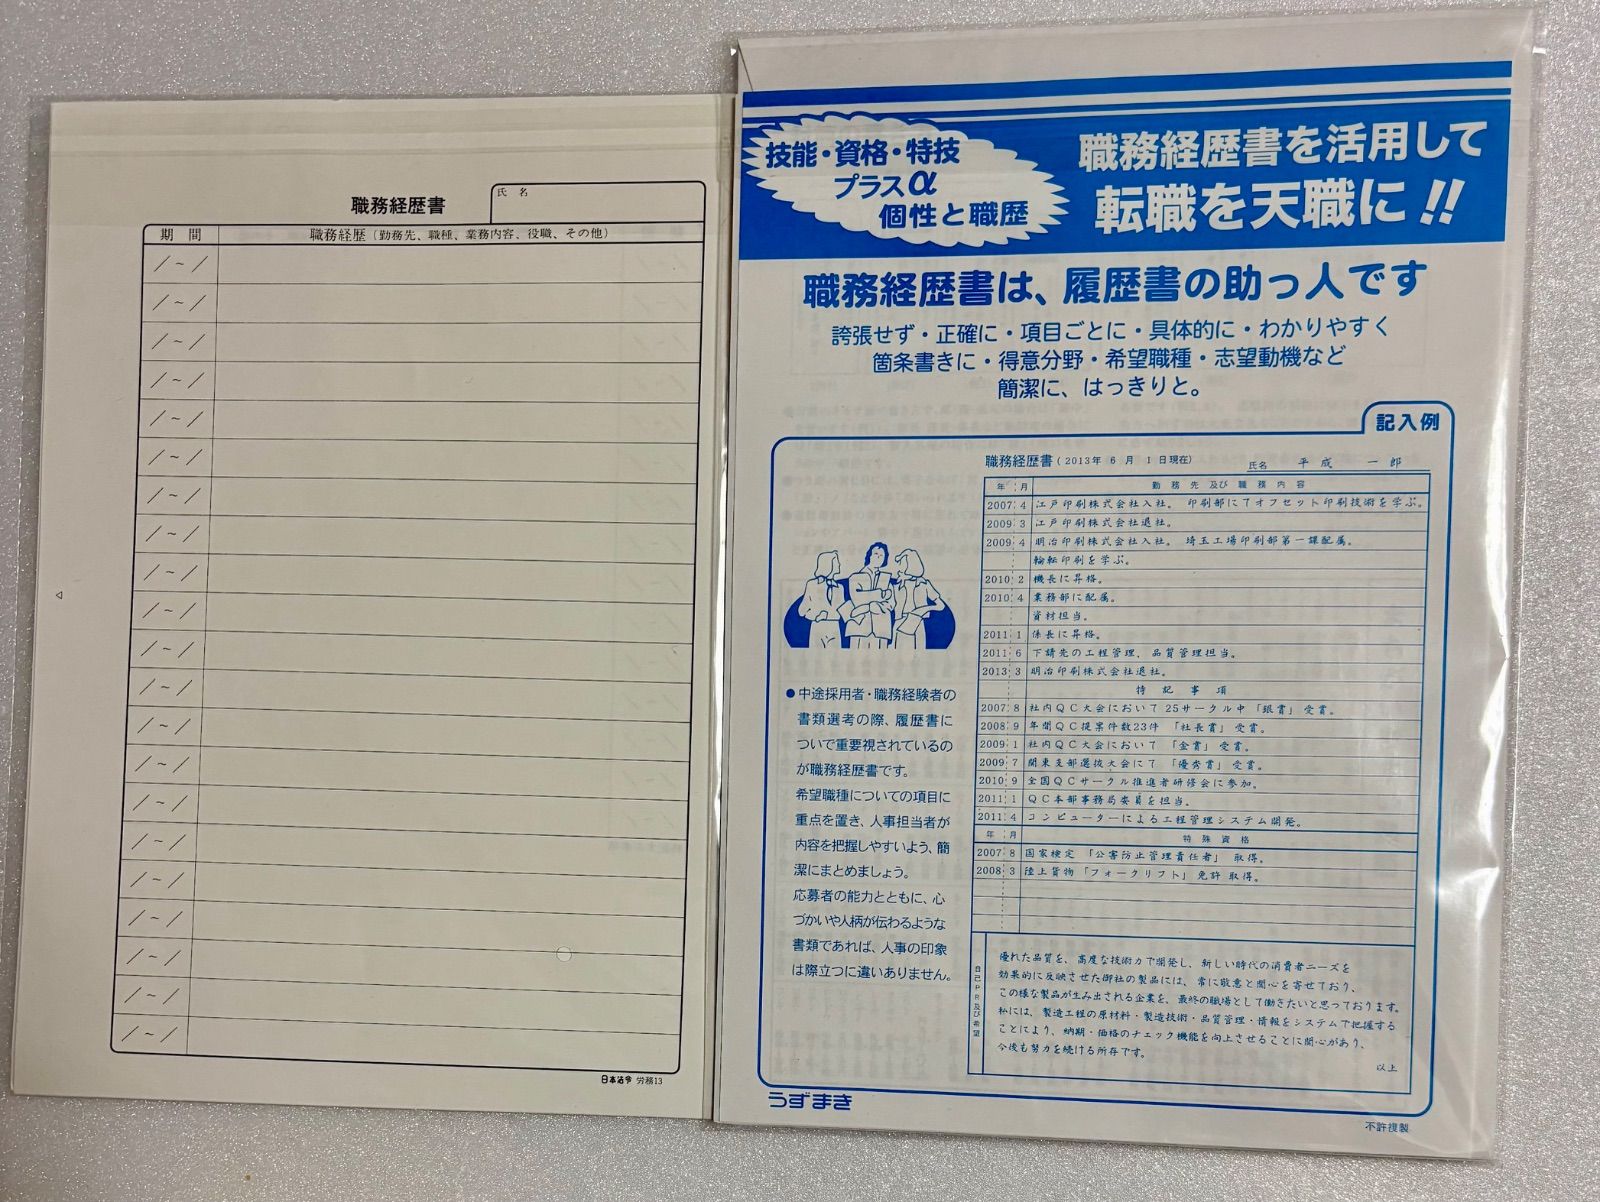 職務経歴書
氏 名
期 間 職務経歴（勤務先、職種、業務内容、役職、その他）
／～／
／～／
／～／
／～／
／～／
／～／
／～／
／～／
／～／
／～／
／～／
／～／
／～／
／～／
／～／
／～／
／～／
／～／
／～／
／～／
／～／
日本法令 労務13
技能・資格・特技
プラスα
個性と職歴
職務経歴書を活用して
転職を天職に!!
職務経歴書は、履歴書の助っ人です
誇張せず・正確に・項目ごとに・具体的に・わかりやすく
箇条書きに・得意分野・希望職種・志望動機など
簡潔に、はっきりと。
記入例
職務経歴書（2013年 6 月 1 日現在） 氏名 平 成 一 郎
年 月 勤 務 先 及 び 職 務 内 容
2007 4 江戸印刷株式会社入社。 印刷部にてオフセット印刷技術を学ぶ。
2009 3 江戸印刷株式会社退社。
2009 4 明治印刷株式会社入社。 埼玉工場印刷部第一課配属。
輪転印刷を学ぶ。
2010 2 機長に昇格。
2010 4 業務部に配属。
資材担当。
2011 1 係長に昇格。
2011 6 下請先の工程管理、品質管理担当。
2013 3 明治印刷株式会社退社。
特 記 事 項
2007 8 社内QC大会において25サークル中「銀賞」受賞。
2008 9 年間QC提案件数23件 「社長賞」受賞。
2009 1 社内QC大会において 「金賞」受賞。
2009 7 関東支部選抜大会にて 「優秀賞」受賞。
2010 9 全国QCサークル推進者研修会に参加。
2011 1 QC本部事務局委員を担当。
2011 4 コンピューターによる工程管理システム開発。
年 月 特 殊 資 格
2007 8 国家検定 「公害防止管理責任者」 取得。
2008 3 陸上貨物「フォークリフト」免許 取得。
自己PR及び希望
優れた品質を、高度な技術力で開発し、新しい時代の消費者ニーズを
効果的に反映させた御社の製品には、常に敬意と関心を寄せており、
この様な製品が生み出される企業を、最終の職場として働きたいと思っております。
私には、製造工程の原材料・製造技術・品質管理・情報をシステムで把握する
ことにより、納期・価格のチェック機能を向上させることに関心があり、
今後も努力を続ける所存です。
以上
●中途採用者・職務経験者の
書類選考の際、履歴書に
ついで重要視されているの
が職務経歴書です。
希望職種についての項目に
重点を置き、人事担当者が
内容を把握しやすいよう、簡
潔にまとめましょう。
応募者の能力とともに、心
づかいや人柄が伝わるような
書類であれば、人事の印象
は際立つに違いありません。
うずまき
不許複製